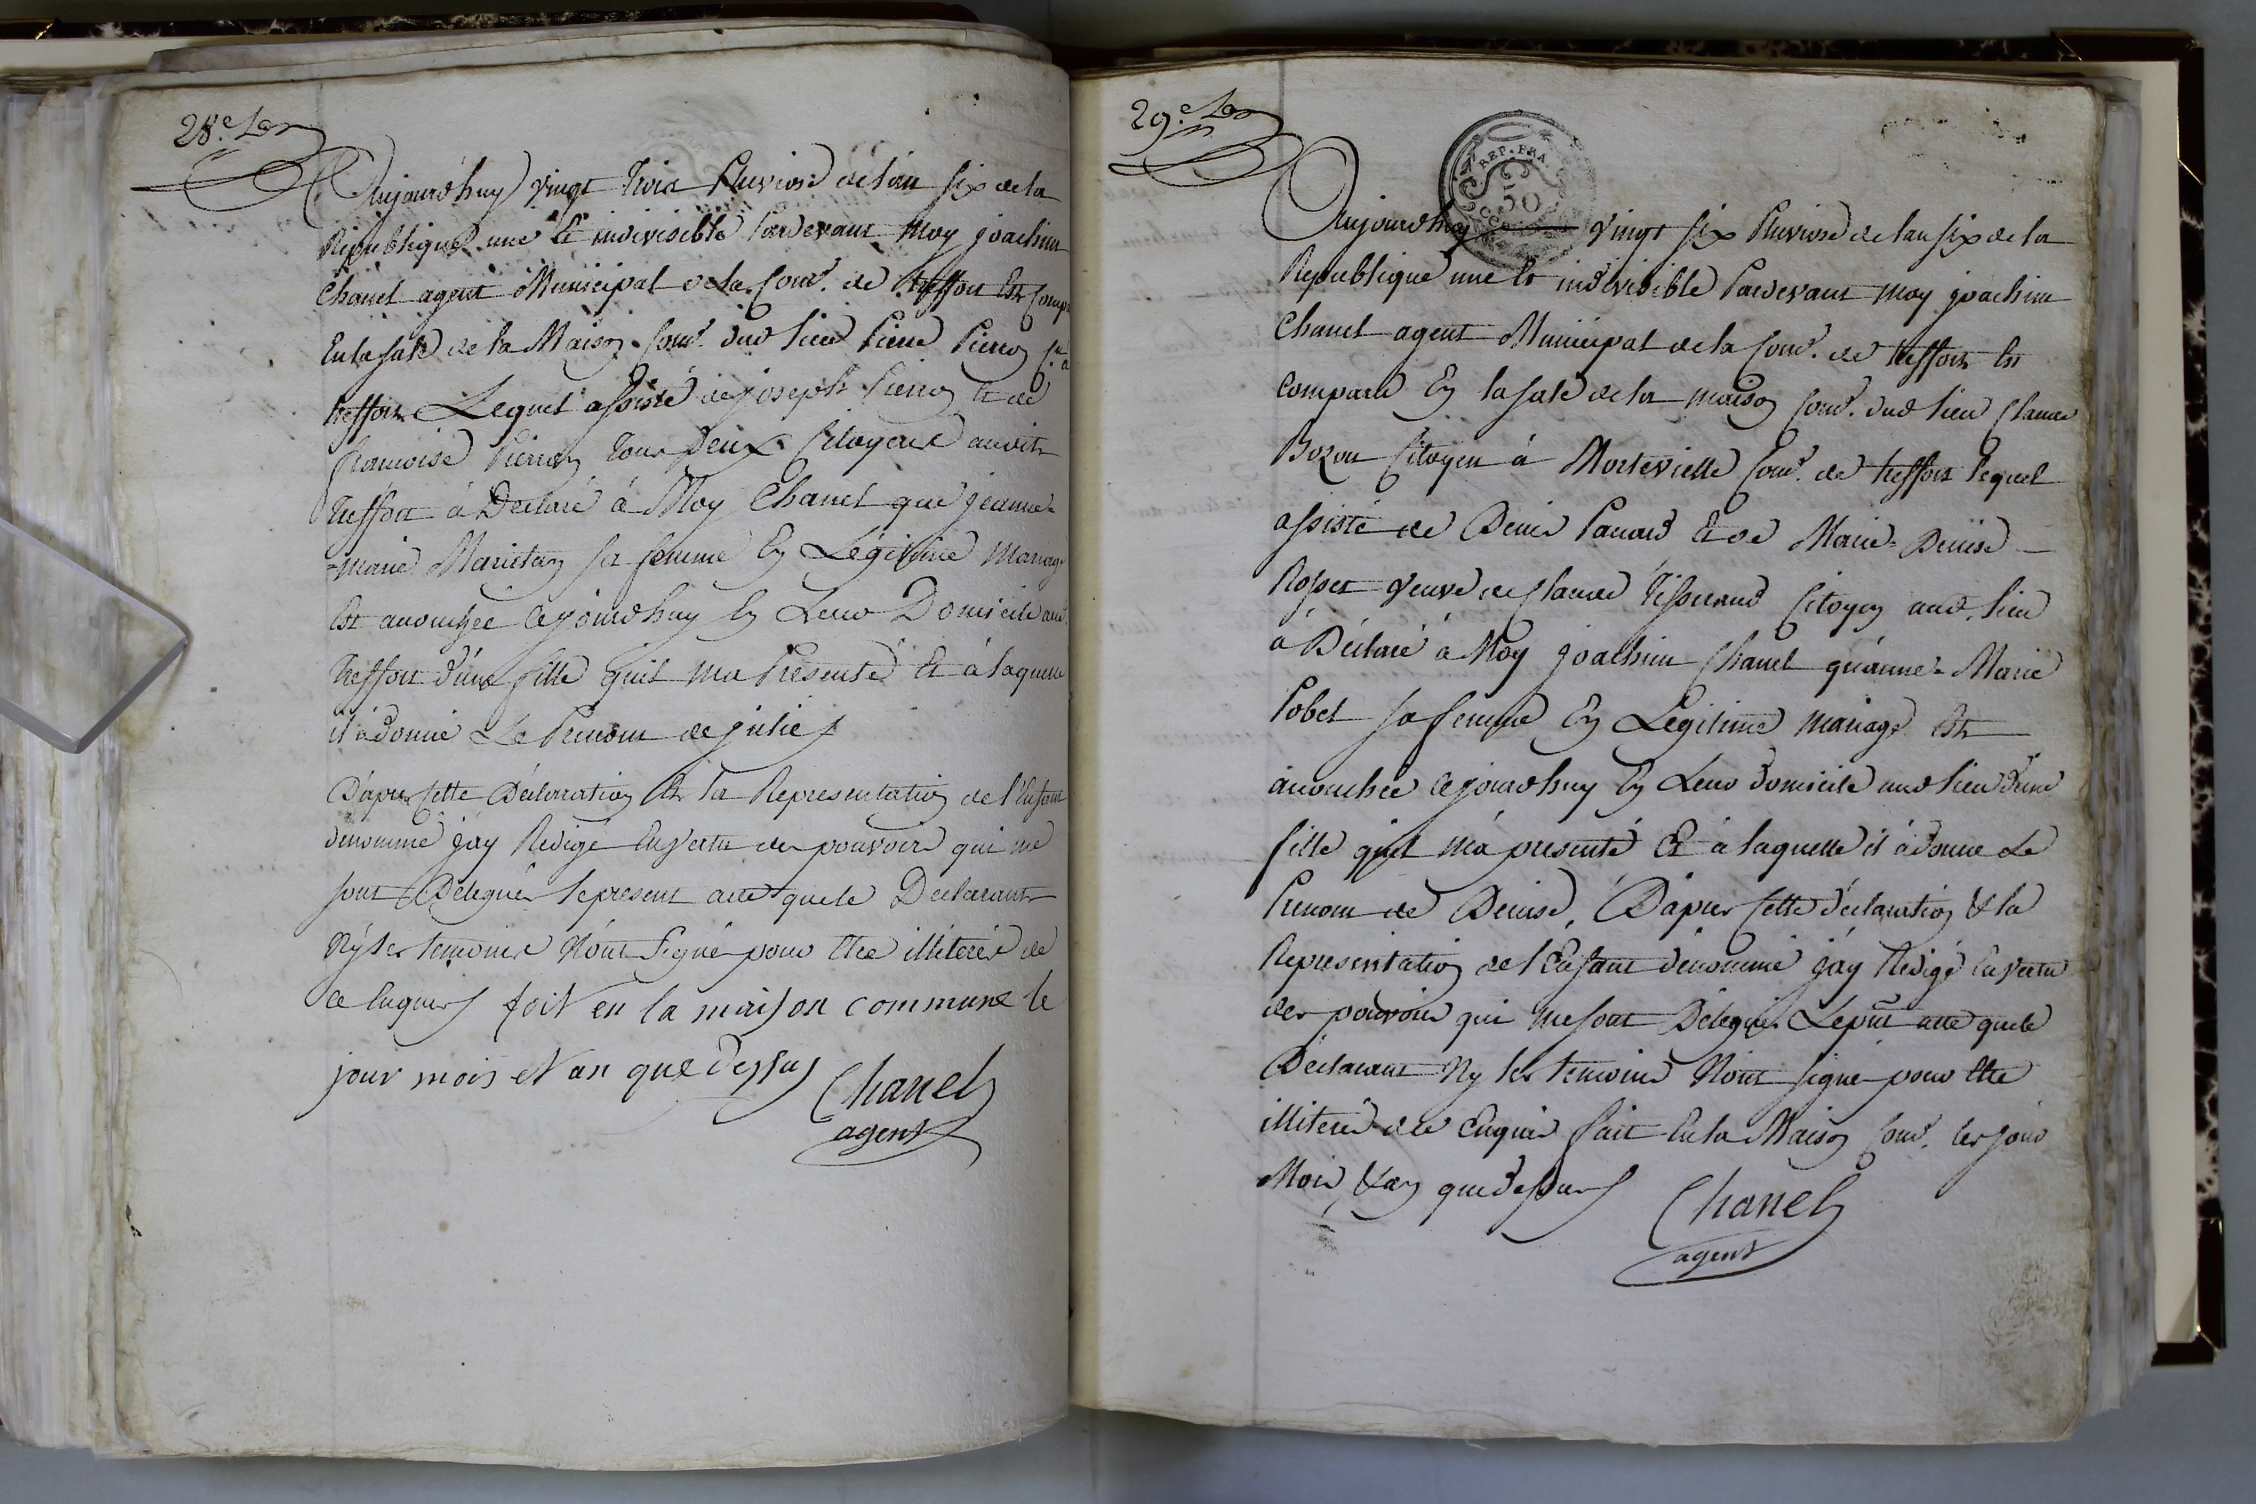 28.e
Aujourdhuy vingt trois Pluviose de lan six de la
Republique une et indivisible Pardevant Moy joachim
Chanel agent Municipal de la Com.e de treffort Est comp
En la sale de la Maison Com.e dud lieu Pierre Pierron
treffort Lequel assisté de joseph Pierron et de
francoise Pierron tous deux Citoyens audit
treffort à Declaré à Moy Chanel que jeanne-
marie Marietan sa femme En Légitime Mariage
Est accouchée cejourdhuy En Leur Domicile aud.
treffort d'une fille quil ma Présenté Et à laquelle
il à donné Le Prenom de julie
D'apres Cette Déclaration Et la Representation de l'Enfant
denommé jay Redigé En vertu des pouvoirs qui me
sont Délegués le present acte que le Declarant
Ny les temoins N'ont Signé pour Etre illiterés de
ce Enquis fait en la maison commune le
jour mois et an que dessus
Chanel
agent
29.e
REP. FRA.
50
Aujourdhuy vingt six Pluviose de lan six de la
Republique une Et indivisible Pardevant moy joachim
Chanel agent Municipal de la Com.e de treffort Est
comparu En la sale de la maison Com.e dud lieu Claude
Bozon Citoyen à Montevielle Com.e de treffort lequel
assisté de Denis Panard Et de Marie-Denise
Rosset veuve de Claude Tisserand Citoyen aud. lieu
à Déclaré à Moy joachim Chanel qu'anne-Marie
Pobel sa femme En Legitime mariage Est
accouchée cejourdhuy En Leur domicile aud lieu d'une
fille quil m'à présenté Et à laquelle il à donné Le
Prenom de Denise, D'après Cette déclaration & la
Representation de l'Enfant dénommé j'ay Redigé En vertu
des pouvoirs qui me sont Délegués Le pnt acte que le
Déclarant Ny les temoins N'ont signé pour Etre
illiteré de ce Enquis fait En la Maison Com.e les jour
Mois & an que dessus
Chanel
agent